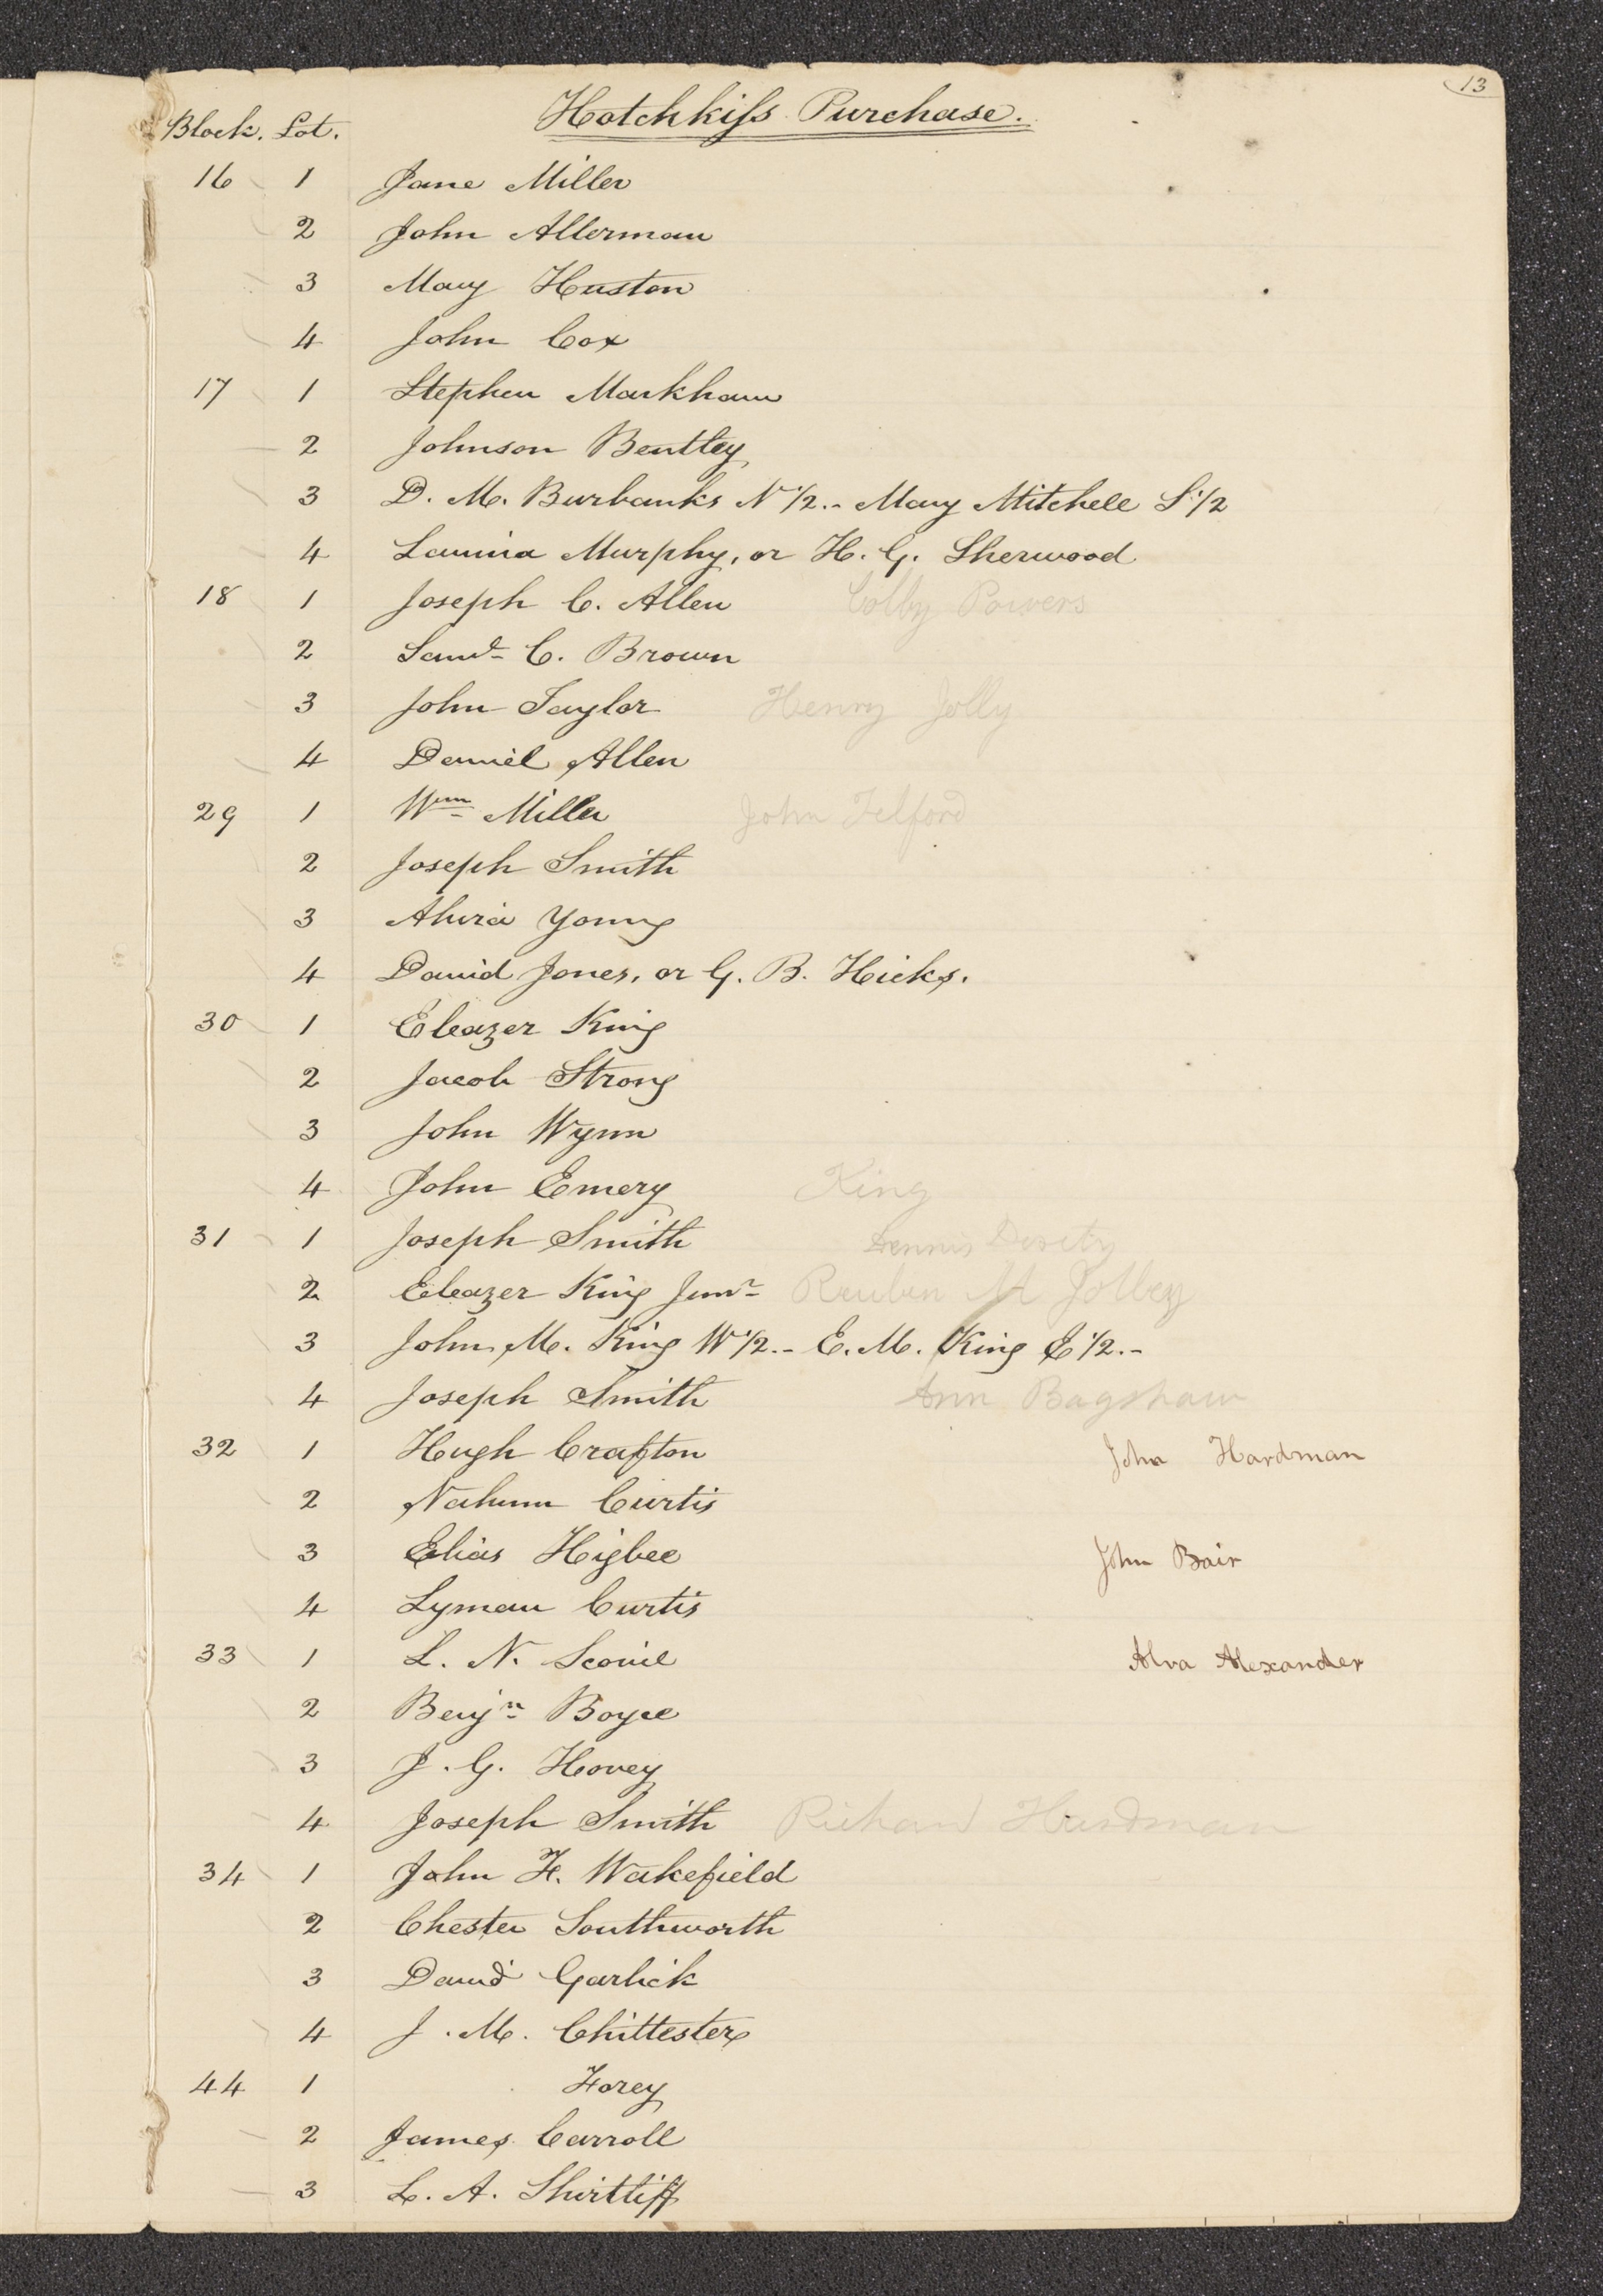 13
Hotchkiss Purchase.
Block. Lot.
16 1 Jane Miller
2 John Allerman
3 Mary Huston
4 John Cox
17 1 Stephen Markham
2 Johnson Bentley
3 D. M. Burbanks N 1/2.- Mary Mitchell S 1/2
4 Murphy, or H. G. Sherwood
18 1 Joseph C. Allen Colby Powers
2 Saml C. Brown
3 John Taylor Henry Jolly
4 Daniel Allen
29 1 Wm Miller John Telford
2 Joseph Smith
3 Young
4 David Jones, or G. B. Hicks.
30 1 Eleazer King
2 Jacob Strong
3 John Wynn
4 John Emery King
31 1 Joseph Smith Dennis
2 Eleazer King Junr Reuben M Jolley
3 John M. King W 1/2.- E. M. King E 1/2.-
4 Joseph Smith Ann Bagshaw
32 1 Hugh Crafton John Hardman
2 Nahum Curtis
3 Elias Higbee John Bair
4 Lyman Curtis
33 1 L. N. Scovil Alva Alexander
2 Benjn Boyce
3 J. G. Hovey
4 Joseph Smith Richard Hurdman
34 1 John F. Wakefield
2 Chester Southworth
3 David Garlick
4 J. M. Chittester
44 1 Forey
2 James Carroll
3 L. A. Shirtliff